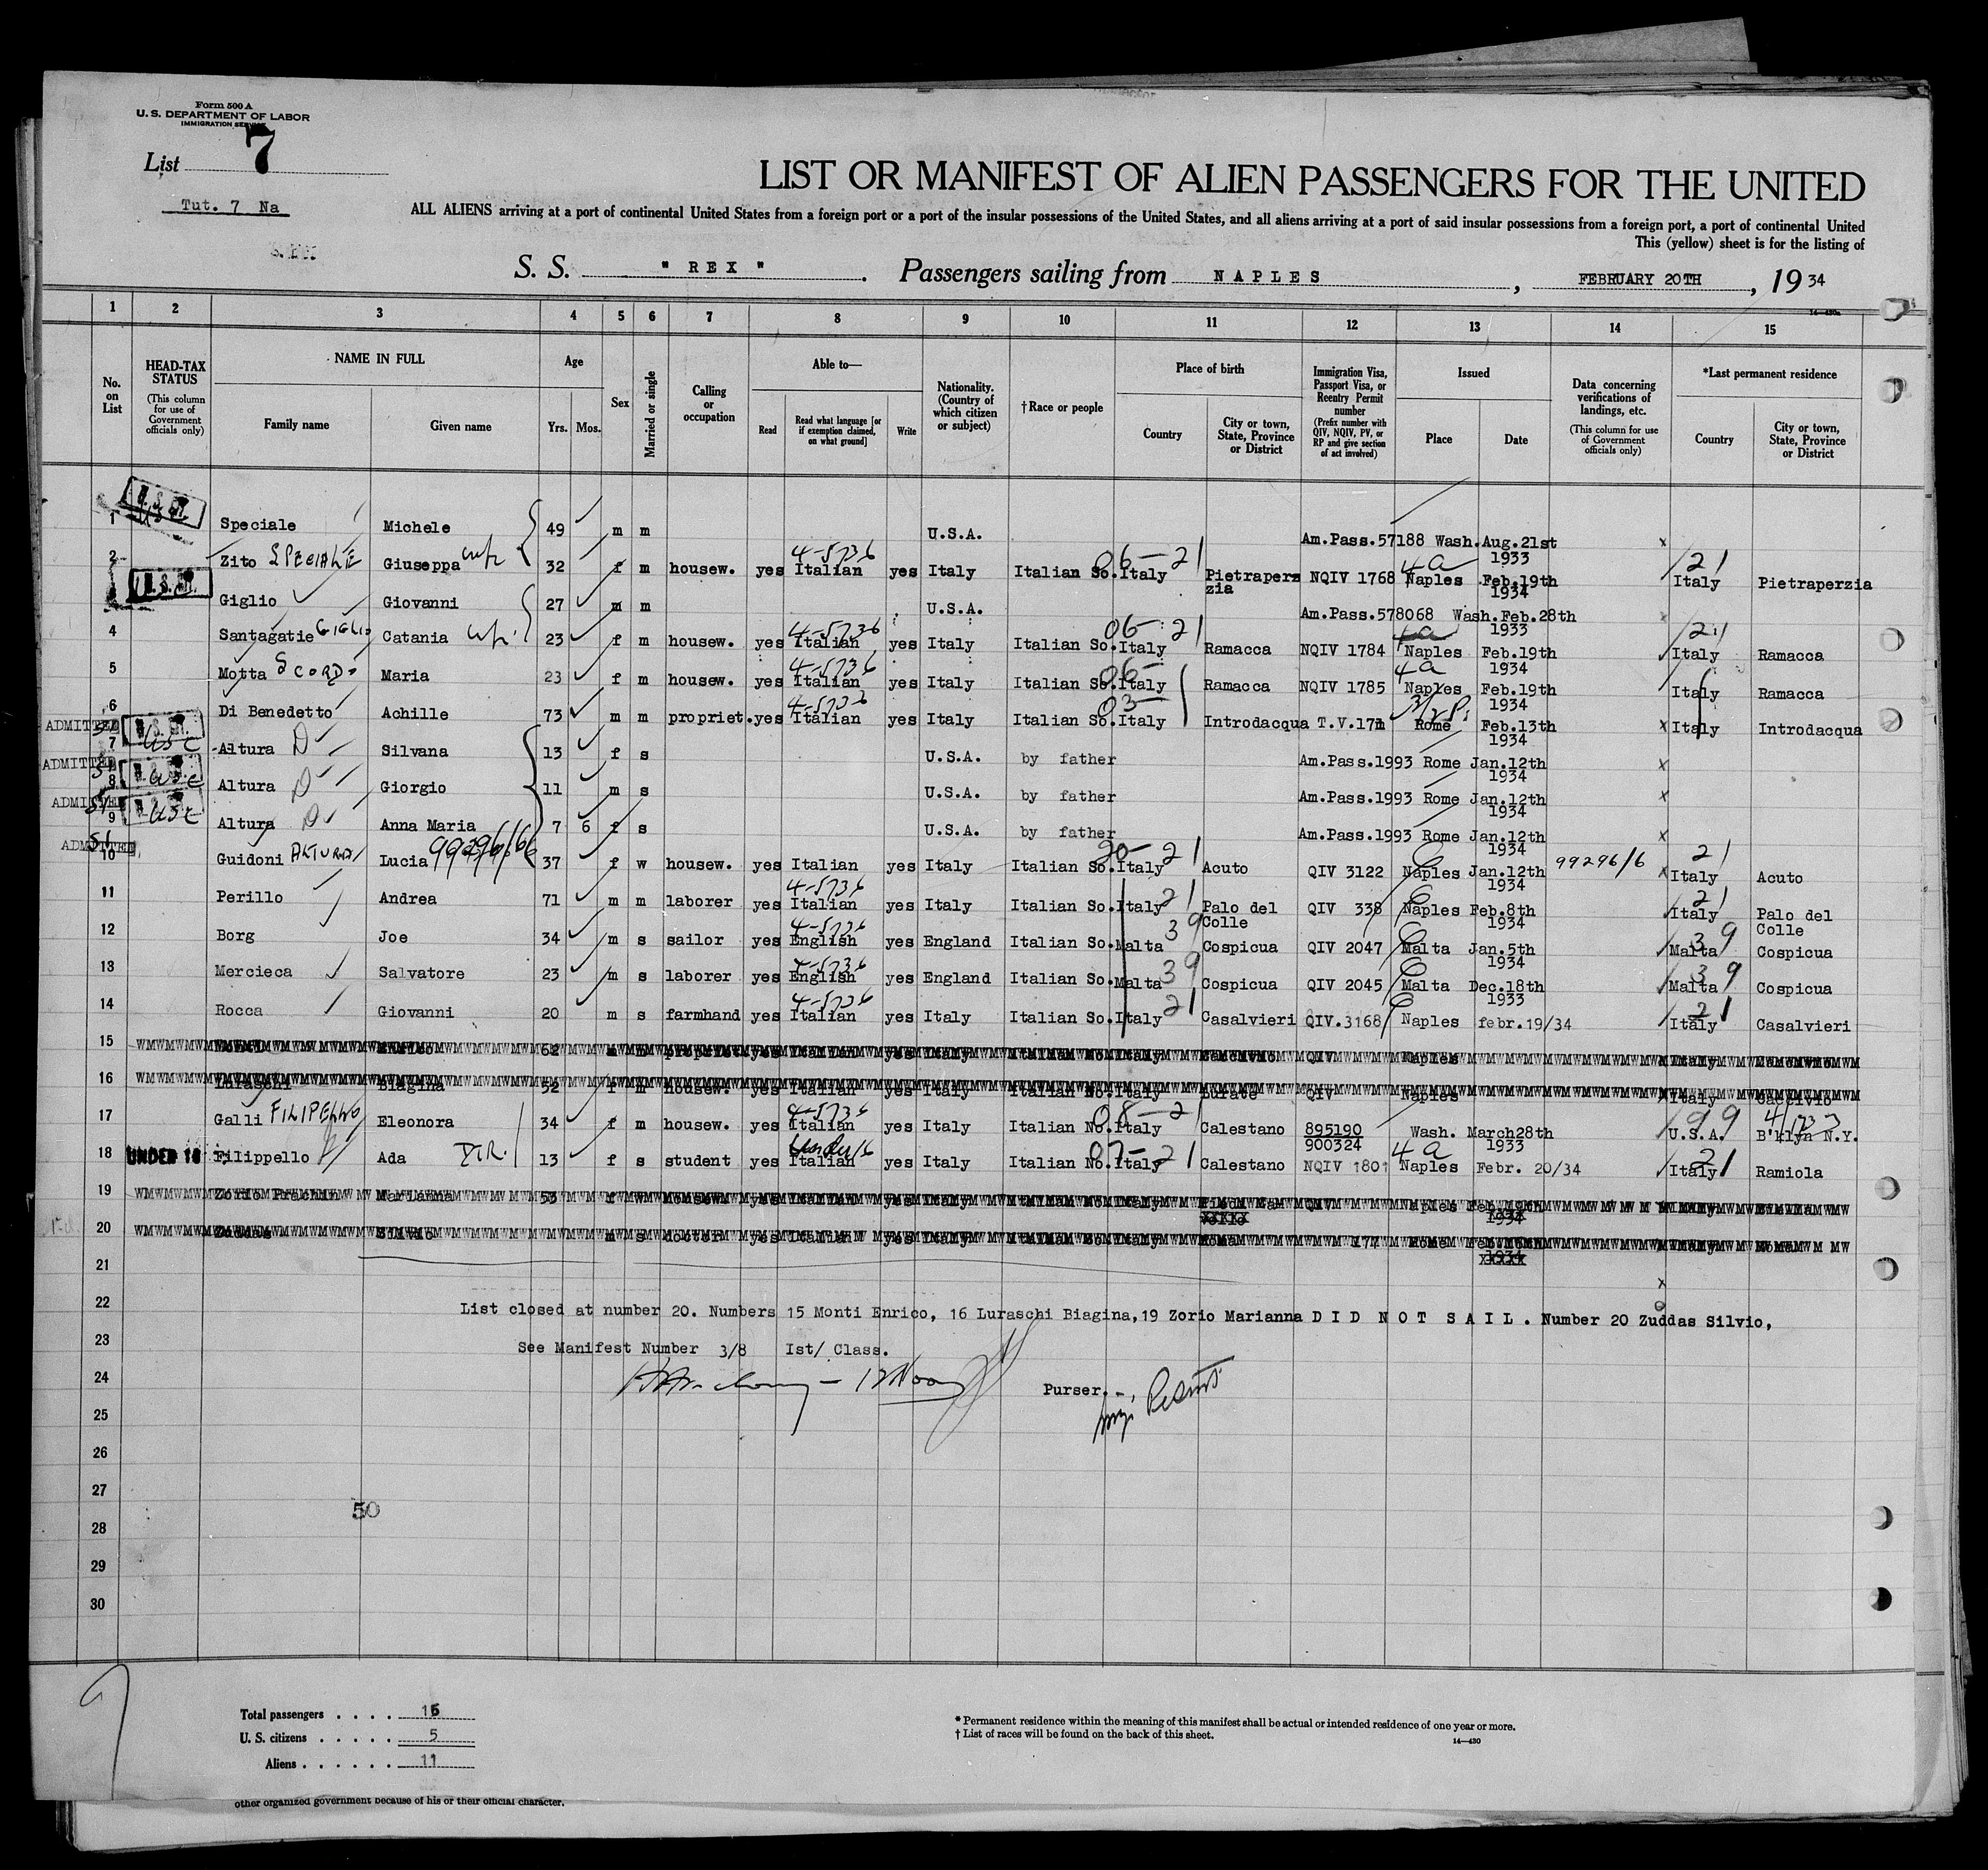 Form 500 A
U. S. DEPARTMENT OF LABOR
IMMIGRATION SERVICE
List 7
Tut. 7 Na
LIST OR MANIFEST OF ALIEN PASSENGERS FOR THE UNITED
ALL ALIENS arriving at a port of continental United States from a foreign port or a port of the insular possessions of the United States, and all aliens arriving at a port of said insular possessions from a foreign port, a port of continental United
This (yellow) sheet is for the listing of
S. S. " REX ". Passengers sailing from NAPLES, FEBRUARY 20TH, 19 34
1 2 3 4 5 6 7 8 9 10 11 12 13 14 15
No. on List
HEAD-TAX STATUS (This column for use of Government officials only)
NAME IN FULL Family name Given name
Age Yrs. Mos.
Sex
Married or single
Calling or occupation
Able to— Read Read what language [or if exemption claimed, on what ground] Write
Nationality. (Country of which citizen or subject)
† Race or people
Place of birth Country City or town, State, Province or District
Immigration Visa, Passport Visa, or Reentry Permit number (Prefix number with QIV, NQIV, PV, or RP and give section of act involved)
Issued Place Date
Data concerning verifications of landings, etc. (This column for use of Government officials only)
*Last permanent residence Country City or town, State, Province or District
1 Speciale Michele 49 m m U.S.A. Am.Pass.57188 Wash.Aug.21st 1933 x
2 Zito SPECIALE Giuseppa 32 f m housew. yes 4-5736 Italian yes Italy Italian So. Italy 06-21 Pietraperzia NQIV 1768 4a Naples Feb.19th 1934 21 Italy Pietraperzia
Giglio Giovanni 27 m m U.S.A. Am.Pass.578068 Wash.Feb.28th 1933
4 Santagatie GIGLIO Catania 23 f m housew. yes 4-5736 Italian yes Italy Italian So. Italy 06-21 Ramacca NQIV 1784 4a Naples Feb.19th 1934 21 Italy Ramacca
5 Motta SCORDO Maria 23 f m housew. yes 4-5736 Italian yes Italy Italian So. Italy 06- Ramacca NQIV 1785 4a Naples Feb.19th 1934 Italy Ramacca
6 Di Benedetto Achille 73 m m propriet. yes Italian yes Italy Italian So. Italy 03- Introdacqua T.V.171 Rome Feb.13th 1934 x Italy Introdacqua
ADMITTED 7 Altura Silvana 13 f s U.S.A. by father Am.Pass.1993 Rome Jan.12th 1934 x
ADMITTED 8 Altura Giorgio 11 m s U.S.A. by father Am.Pass.1993 Rome Jan.12th 1934 x
ADMITTED 9 Altura Anna Maria 7 6 f s U.S.A. by father Am.Pass.1993 Rome Jan.12th 1934 x
ADMITTED 10 Guidoni ALTURA Lucia 37 f w housew. yes Italian yes Italy Italian So. Italy 20-21 Acuto QIV 3122 Naples Jan.12th 1934 99296/6 x 21 Italy Acuto
11 Perillo Andrea 71 m m laborer yes 4-5736 Italian yes Italy Italian So. Italy 21 Palo del Colle QIV 338 Naples Feb.8th 1934 21 Italy Palo del Colle
12 Borg Joe 34 m s sailor yes 4-5736 English yes England Italian So. Malta 39 Cospicua QIV 2047 Malta Jan.5th 1934 39 Malta Cospicua
13 Mercieca Salvatore 23 m s laborer yes 4-5736 English yes England Italian So. Malta 39 Cospicua QIV 2045 Malta Dec.18th 1933 39 Malta Cospicua
14 Rocca Giovanni 20 m s farmhand yes 4-5736 Italian yes Italy Italian So. Italy 21 Casalvieri QIV.3168 Naples febr.19/34 21 Italy Casalvieri
15
16 Luraschi Biagina 52 f m housew. yes Italian yes Italy Italian No. Italy Lurate QIV Naples Italy Caccivio
17 Galli FILIPELLO Eleonora 34 f m housew. yes 4-5736 Italian yes Italy Italian No. Italy 08-21 Calestano 895190 900324 Wash. March28th 1933 99 U.S.A. B'klyn N.Y.
18 UNDER 16 Filippello Ada 13 f s student yes Under 16 Italian yes Italy Italian No. Italy 07-21 Calestano NQIV 1801 4a Naples Febr. 20/34 21 Italy Ramiola
19 Zorio Marianna 53 f
20 Zuddas Silvio m s doctor yes Italian yes Italy 177 Rome 1934
21
22 List closed at number 20. Numbers 15 Monti Enrico, 16 Luraschi Biagina,19 Zorio Marianna D I D N O T S A I L . Number 20 Zuddas Silvio,
23 See Manifest Number 3/8 Ist/ Class.
24 Purser.-
25
26
27
50
28
29
30
Total passengers . . . . 16
U. S. citizens . . . . . 5
Aliens . . . . . . 11
* Permanent residence within the meaning of this manifest shall be actual or intended residence of one year or more.
† List of races will be found on the back of this sheet.
14—430
other organized government because of his or their official character.